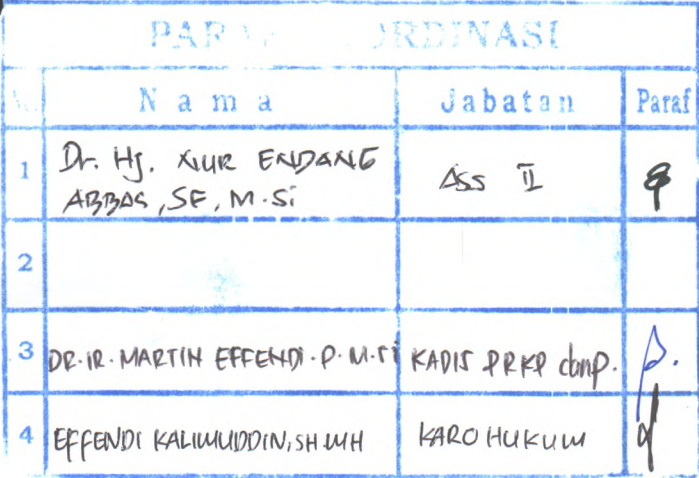 PARAF KOORDINASI
No. Nama Jabatan Paraf
1 Dr. Hj. NUR ENDANG
ABBAS, SE, M.Si ASS II
2
3 DR. IR. MARTIN EFFENDI. P. M.Si KADIS PRKP danp.
4 EFFENDI KALIMUDDIN, SH MH KARO HUKUM